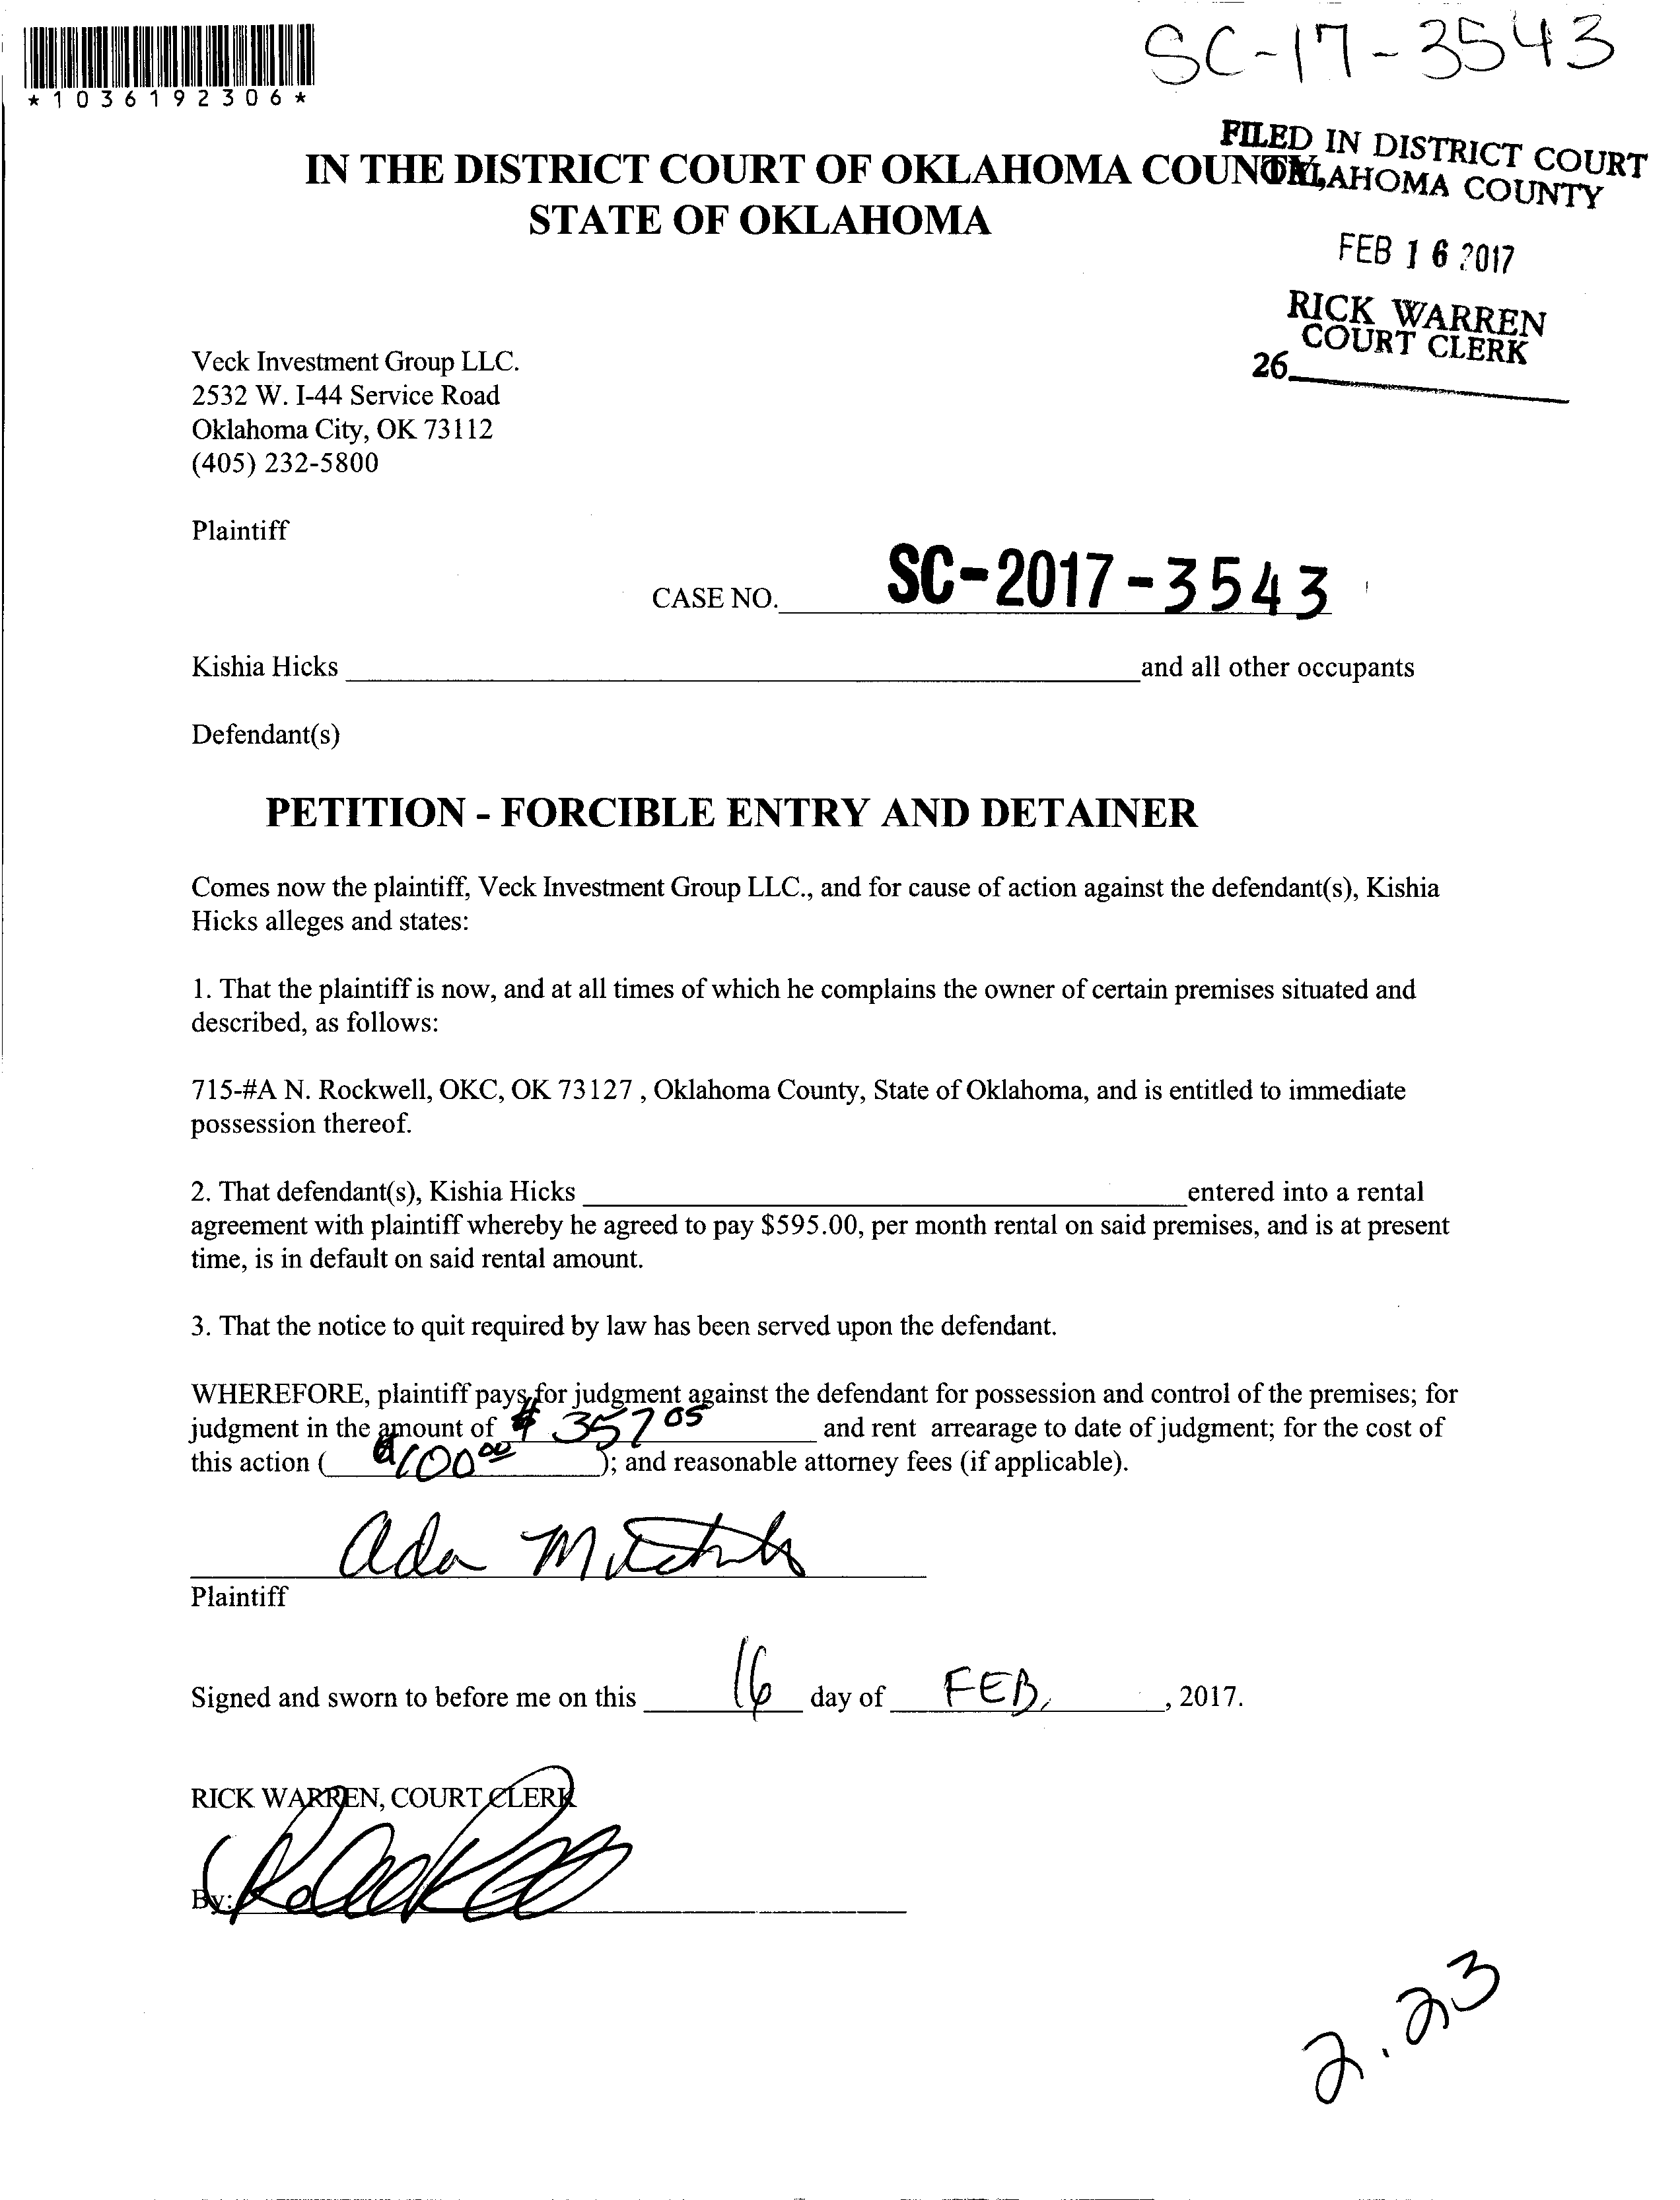 SC-17-3543
*1036192306*
FILED IN DISTRICT COURT
OKLAHOMA COUNTY
IN THE DISTRICT COURT OF OKLAHOMA COUNTY,
STATE OF OKLAHOMA
FEB 16 2017
RICK WARREN
COURT CLERK
26
Veck Investment Group LLC.
2532 W. I-44 Service Road
Oklahoma City, OK 73112
(405) 232-5800
Plaintiff
CASE NO. SC-2017-3543
Kishia Hicks and all other occupants
Defendant(s)
PETITION - FORCIBLE ENTRY AND DETAINER
Comes now the plaintiff, Veck Investment Group LLC., and for cause of action against the defendant(s), Kishia
Hicks alleges and states:
1. That the plaintiff is now, and at all times of which he complains the owner of certain premises situated and
described, as follows:
715-#A N. Rockwell, OKC, OK 73127 , Oklahoma County, State of Oklahoma, and is entitled to immediate
possession thereof.
2. That defendant(s), Kishia Hicks entered into a rental
agreement with plaintiff whereby he agreed to pay $595.00, per month rental on said premises, and is at present
time, is in default on said rental amount.
3. That the notice to quit required by law has been served upon the defendant.
WHEREFORE, plaintiff pays for judgment against the defendant for possession and control of the premises; for
judgment in the amount of $ 357 05 and rent arrearage to date of judgment; for the cost of
this action ( $100 00 ); and reasonable attorney fees (if applicable).
Ada
Plaintiff
Signed and sworn to before me on this 16 day of FEB, , 2017.
RICK WARREN, COURT CLERK
By:
2.23